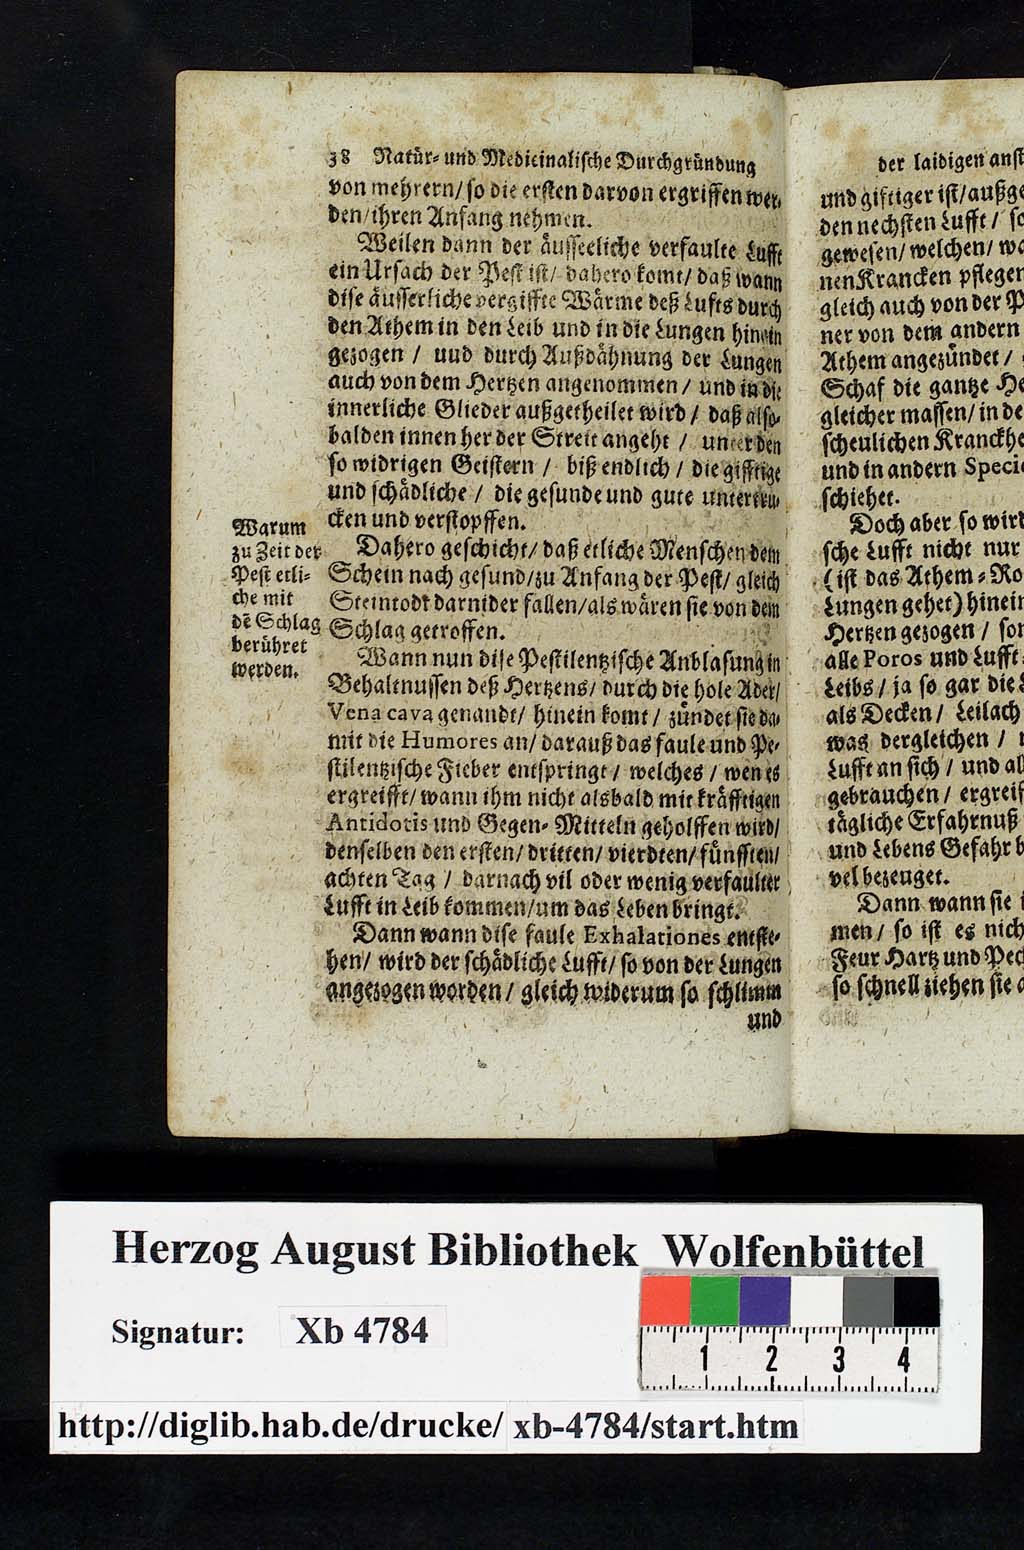 38 Natür- und Medicinalische Durchgründung
von mehrern/ so die ersten darvon ergriffen wer-
den/ ihren Anfang nehmen.
Weilen dann der äusseeliche verfaulte Lufft
ein Ursach der Pest ist/ dahero komt/ daß wann
dise äusserliche vergiffte Wärme deß Lufts durch
den Athem in den Leib und in die Lungen hinein
gezogen / uud durch Außdähnung der Lungen
auch von dem Hertzen angenommen / und in die
innerliche Glieder außgetheilet wird / daß also-
balden innen her der Streit angeht / unter den
so widrigen Geistern / biß endlich / die gifftige
und schädliche / die gesunde und gute untertru-
cken und verstopffen.
Warum
zu Zeit der
Pest etli-
che mit
dē Schlag
berühret
werden.
Dahero geschicht/ daß etliche Menschen dem
Schein nach gesund/ zu Anfang der Pest/ gleich
Steintodt darnider fallen/ als wären sie von dem
Schlag getroffen.
Wann nun dise Pestilentzische Anblasung in
Behaltnussen deß Hertzens/ durch die hole Ader/
Vena cava genandt/ hinein komt / zündet sie da-
mit die Humores an/ darauß das faule und Pe-
stilentzische Fieber entspringt / welches / wen es
ergreifft/ wann ihm nicht alsbald mit kräfftigen
Antidotis und Gegen-Mitteln geholffen wird/
denselben den ersten/ dritten/ vierdten/ fünfften/
achten Tag / darnach vil oder wenig verfaulter
Lufft in Leib kommen/ um das Leben bringt.
Dann wann dise faule Exhalationes entste-
hen/ wird der schädliche Lufft/ so von der Lungen
angezogen worden / gleich widerum so schlimm
und
der laidigen anst
und giftiger ist/ außge
den nechsten Lufft / so
gewesen/ welchen/ wa
nen Krancken pflegen
gleich auch von der P
ner von dem andern
Athem angezündet /
Schaf die gantze He
gleicher massen/ in de
scheulichen Kranckhe
und in andern Specie
schiehet.
Doch aber so wird
sche Lufft nicht nur
(ist das Athem-Ro
Lungen gehet) hinein
Hertzen gezogen / son
alle Poros und Lufft-
Leibs / ja so gar die L
als Decken / Leilach
was dergleichen /
Lufft an sich / und all
gebrauchen / ergreif
tägliche Erfahrnuß
und Lebens Gefahr b
vel bezeuget.
Dann wann sie i
men / so ist es nich
Feur Hartz und Pec
so schnell ziehen sie a
Herzog August Bibliothek Wolfenbüttel
Signatur: Xb 4784
1 2 3 4
http://diglib.hab.de/drucke/ xb-4784/start.htm